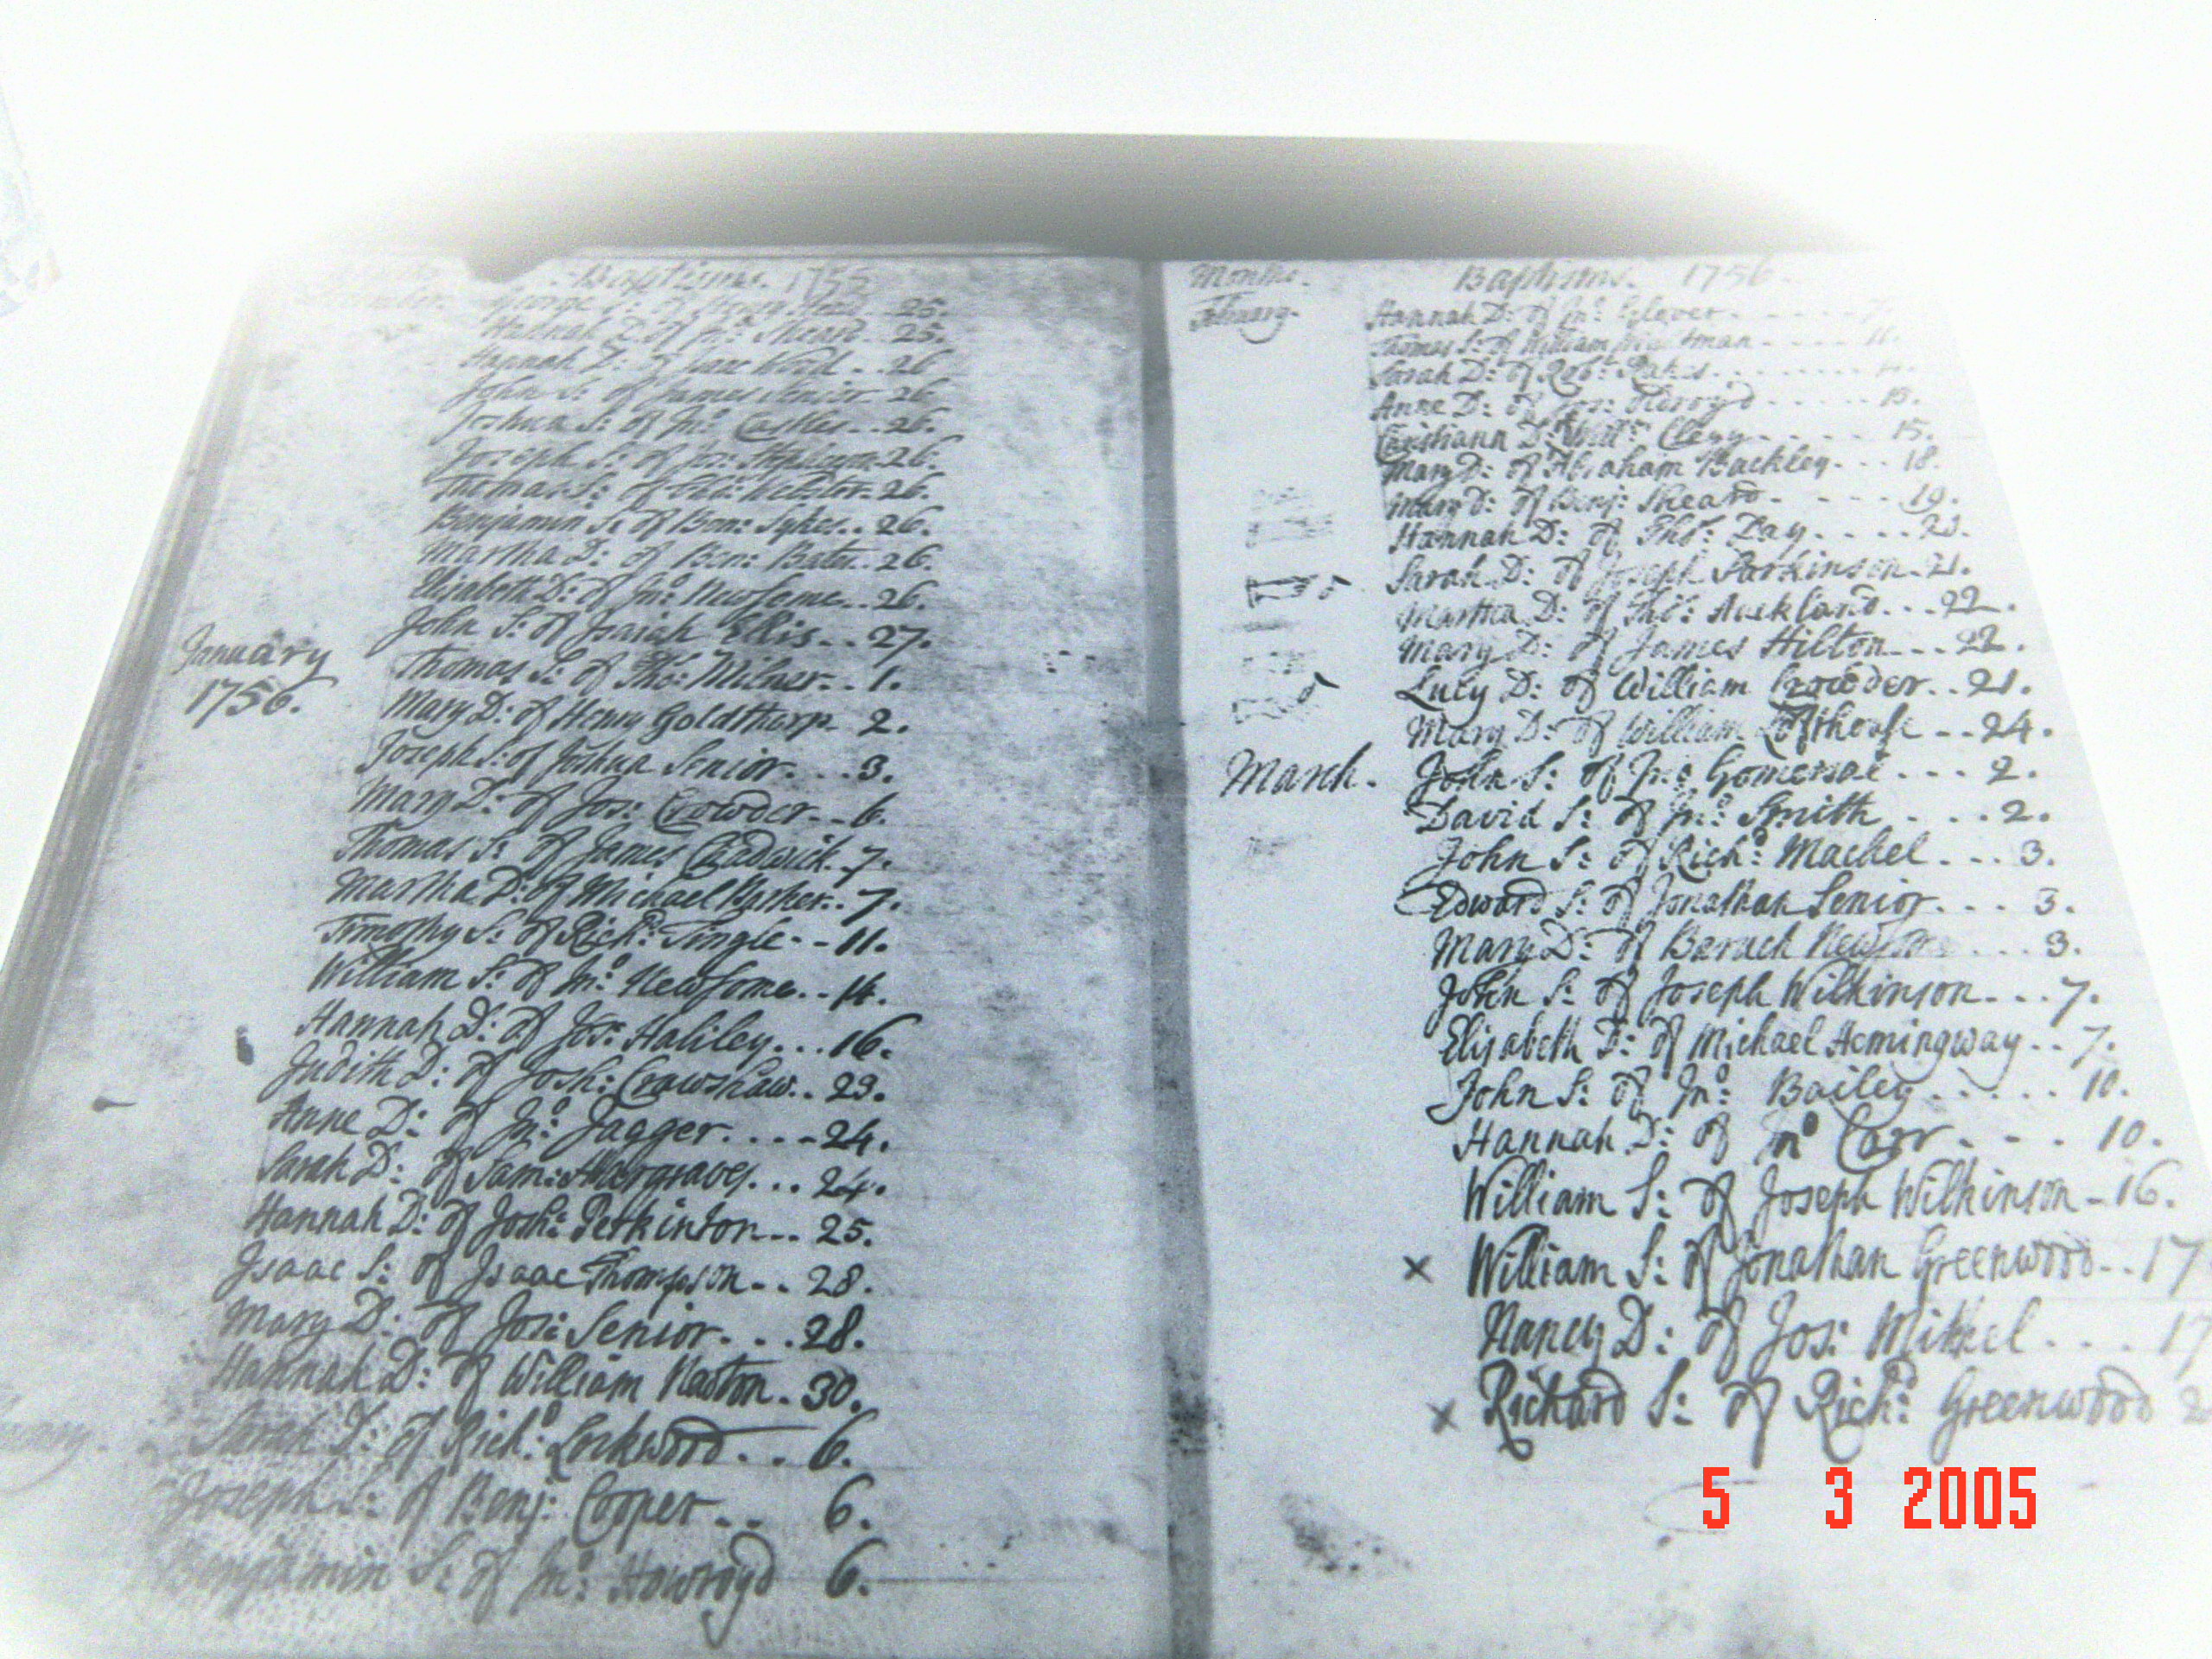 Baptisms. 1755
George S: of Henry 25.
Hannah D: of Jn:o Sheard.. 25.
Hannah D: of Isaac .. 26
John S: of James Senior.. 26
Joshua S: of Jn:o Castles.. 26.
Joseph S: of Jos: 26.
Thomas S: of Webster. 26.
Benjamin S: of Ben: Sykes.. 26.
Martha D: of Ben: Bates.. 26.
Elizabeth D: of Jn:o Newsome.. 26.
John S: of Isaiah Ellis... 27.
January
1756.
Thomas S: of Tho: Milner... 1.
Mary D: of Henry Goldthorp.. 2.
Joseph S: of Joshua Senior.... 3.
Mary D: of Jos: Crowder... 6.
Thomas S: of James Chadwick. 7.
Martha D: of Michael Barker.. 7.
Timothy S: of Rich:d Tingle.. 11.
William S: of Jn:o Newsome.. 14.
Hannah D: of Jos: Haliley... 16.
Judith D: of Josh: Crawshaw.. 23.
Anne D: of Jn:o Jagger.... 24.
Sarah D: of Sam: Hargraves... 24.
Hannah D: of Josh: Perkinton.. 25.
Isaac S: of Isaac Thompson.. 28.
Mary D: of Jos: Senior... 28.
Hannah D: of William Naston. 30.
Sarah D: of Rich:d Lockwood... 6.
Joseph S: of Benj: Cooper.. 6.
Benjamin S: of Jn:o Howroyd 6.
Months. Baptisms. 1756.
February. Hannah D: of Jn:o Glover
Thomas S: of William 11.
Sarah D: of Rob:t
Anne D: of Jos: Oldroyd ..... 15.
Christiann D: Will:m Clegg.... 15.
Mary D: of Abraham Buckley... 18.
Mary D: of Benj: Sheard.... 19.
Hannah D: of Tho:s Day.... 23.
Sarah D: of Joseph Parkinson. 21.
Martha D: of Tho:s Auckland... 22.
Mary D: of James Hilton... 22.
Lucy D: of William Crowder.. 21.
Mary D: of William Lofthouse .. 24.
March. John S: of Jn:o Gomersal ... 2.
David S: of Jn:o Smith .... 2.
John S: of Rich:d Machel ... 3.
Edward S: of Jonathan Senior.... 3.
Mary D: of Beruch Newsome ... 3.
John S: of Joseph Wilkinson... 7.
Elizabeth D: of Michael Hemingway.. 7.
John S: of Jn:o Bailey ..... 10.
Hannah D: of Jn:o Carr.... 10.
William S: of Joseph Wilkinson - 16.
x William S: of Jonathan Greenwood.. 17
Nancy D: of Jos: Mitchel.... 17
x Richard S: of Rich:d Greenwood 2
5 3 2005